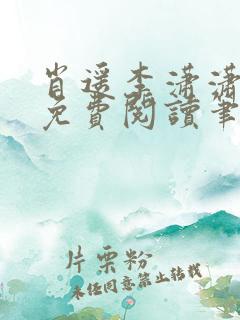 肖遥李潇潇
免費閱讀筆
片栗粉
未经同意禁止转载